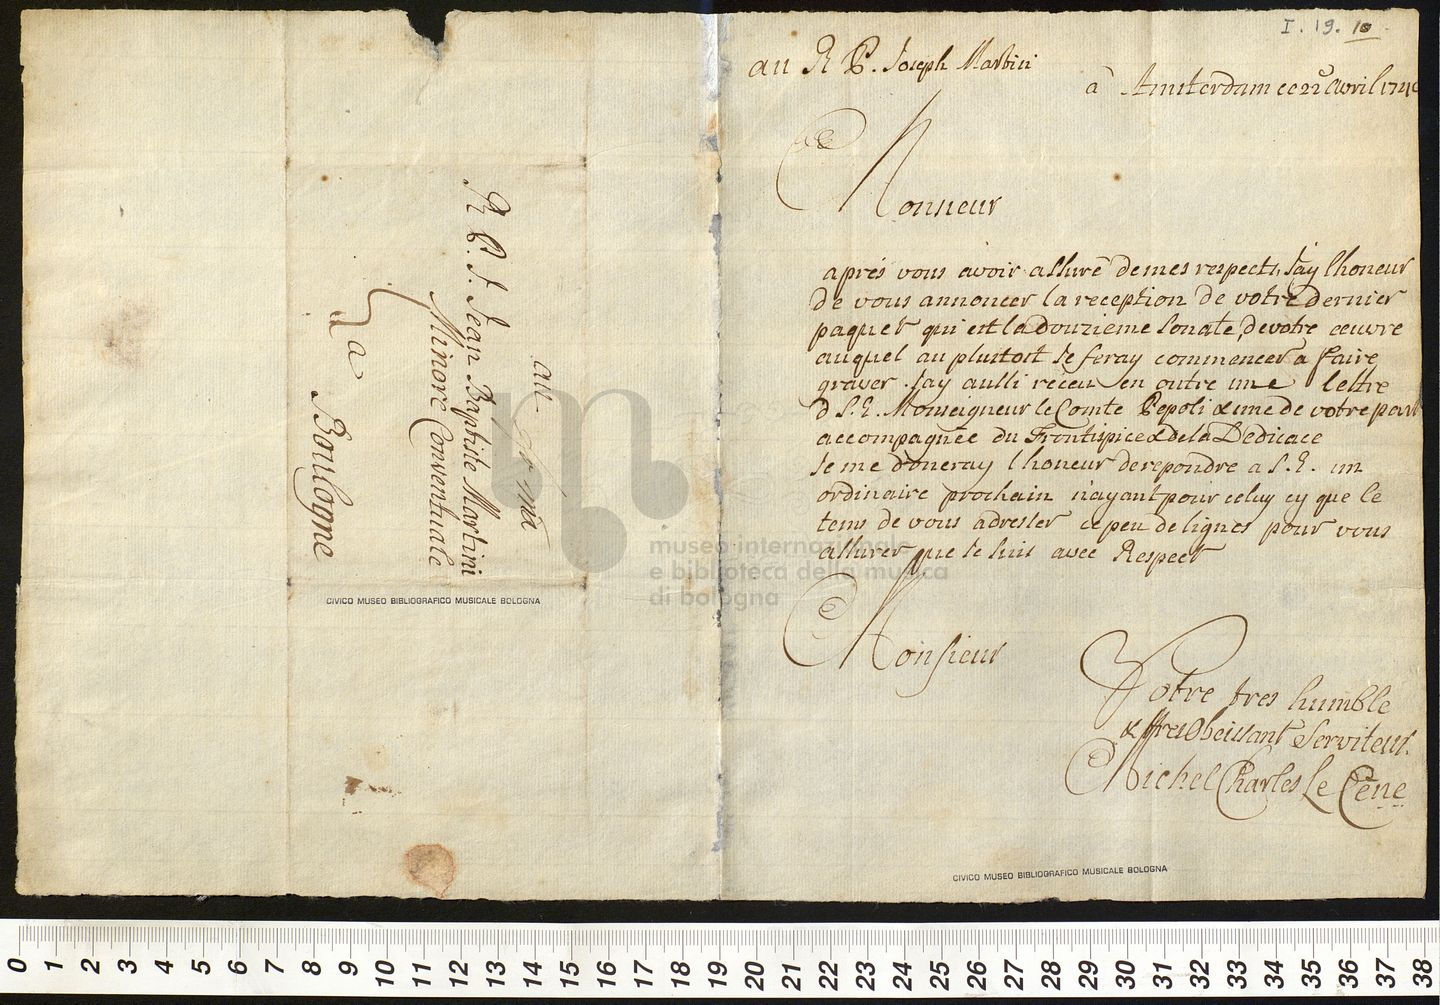 au
R P. J. Jean Baptiste Martini
Minore Conventuale
a
Boulogne
CIVICO MUSEO BIBLIOGRAFICO MUSICALE BOLOGNA
I. 19. 10
au R P. Joseph Martini
à Amsterdam ce 22e Avril 174
Monsieur
aprés vous avoir assuré de mes respects, J'ay l'honeur
de vous annoncer la reception de votre dernier
paquet qui est la douzieme sonate, de votre oeuvre
auquel au plustost je feray commencer a faire
graver. J'ay aussi réceu en outre une lettre
d S. E. Monseigneur le Comte Pepoli & une de votre part
accompagnée du Frontispice & de la Dedicace
Je me doneray l'honeur de repondre a S. E. un
ordinaire prochain n'ayant pour celuy cy que le
tems de vous adresser ce peu de lignes pour vous
assurer que Je suis avec Respect
Monsieur
Votre tres humble
& tres Obeissant Serviteur.
Michel Charles Le Cène
CIVICO MUSEO BIBLIOGRAFICO MUSICALE BOLOGNA
museo internazionale
e biblioteca della musica
di bologna
0 1 2 3 4 5 6 7 8 9 10 11 12 13 14 15 16 17 18 19 20 21 22 23 24 25 26 27 28 29 30 31 32 33 34 35 36 37 38